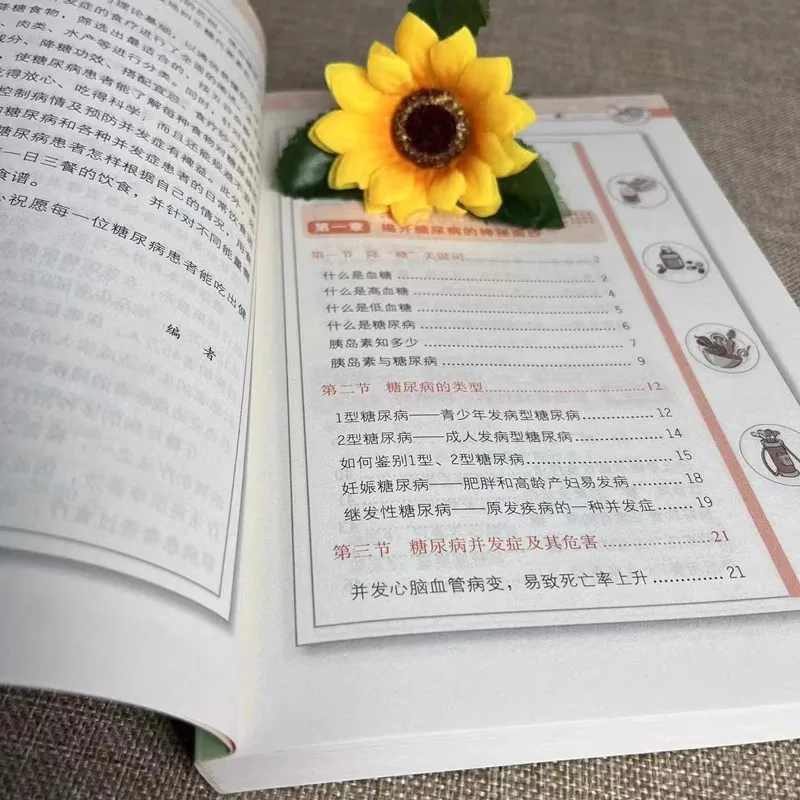 症的食疗进行了全面的阐
降糖食物，筛选出最适合的，按五谷
、肉类、水产等进行分类。同时，针对
成分、降糖功效、搭配宜忌、食疗
，使糖尿病患者能了解每种食物对糖
吃得放心、吃得科学，而且还能
控制病情及预防并发症有裨益。此外，
糖尿病和各种并发症患者的日常饮食
糖尿病患者怎样根据自己的情况，
一日三餐的饮食，并针对不同能量需
食谱。
祝愿每一位糖尿病患者能吃出健
编 者
第一章 揭开糖尿病的神秘面纱
第一节 降“糖”关键词 2
什么是血糖 2
什么是高血糖 4
什么是低血糖 5
什么是糖尿病 6
胰岛素知多少 7
胰岛素与糖尿病 9
第二节 糖尿病的类型 12
1型糖尿病——青少年发病型糖尿病 12
2型糖尿病——成人发病型糖尿病 14
如何鉴别1型、2型糖尿病 15
妊娠糖尿病——肥胖和高龄产妇易发病 18
继发性糖尿病——原发疾病的一种并发症 19
第三节 糖尿病并发症及其危害 21
并发心脑血管病变，易致死亡率上升 21